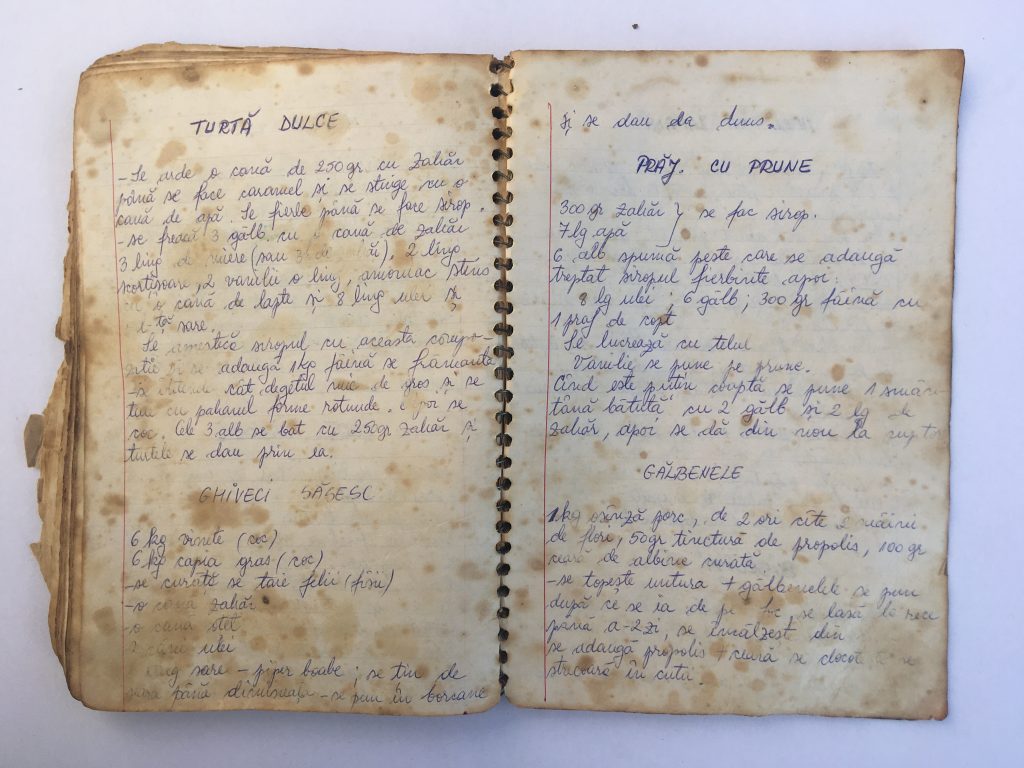 TURTĂ DULCE
- Se arde o cană de 250gr cu zahăr
până se face caramel și se stinge cu o
cană de apă. Se fierbe până se face sirop.
- se freacă 3 gălb. cu o cană de zahăr
3 ling de miere (sau 3 de ), 2 ling
scorțișoare, 2 vanilii o ling, amoniac stins
o cană de lapte și 8 ling ulei și
sare.
Se amestică siropul cu aceasta compo-
ziție și se adaugă 1kg făină se frămîntă
întinde cât degetul mic de gros și se
taie cu paharul forme rotunde. Apoi se
coc. Cele 3 alb se bat cu 250gr zahăr și
turtele se dau prin ea.
GHIVECI SĂSESC
6 kg vinete (coc)
6 kg capia gras (coc)
- se curăță se taie felii (fîșii)
- o cană zahăr
- o cana oțet
ulei
ling sare - piper boabe; se țin de
seara până dimineața - se pun în borcane
și se dau la dunus.
PRĂJ. CU PRUNE
300 gr zahăr } se fac sirop.
7 lg apă
6 alb spumă peste care se adaugă
treptat siropul fierbinte apoi:
8 lg ulei; 6 gălb; 300 gr făină cu
1 praf de copt
Se lucrează cu telul
Vanilie se pune pe prune.
Cînd este puțin coaptă se pune 1 smân
tână bătută cu 2 gălb și 2 lg de
zahăr, apoi se dă din nou la cuptor
GĂLBENELE
1 kg osînză porc, de 2 ori cîte 2 mâini
de flori, 50gr tinctură de propolis, 100gr
ceară de albine curată.
- se topește untura + gălbenelele se pun
după ce se ia de pe foc, se lasă la rece
până a-2 zi, se încălzesc din
se adaugă propolis + ceară se clocot
strecoară în cutii.